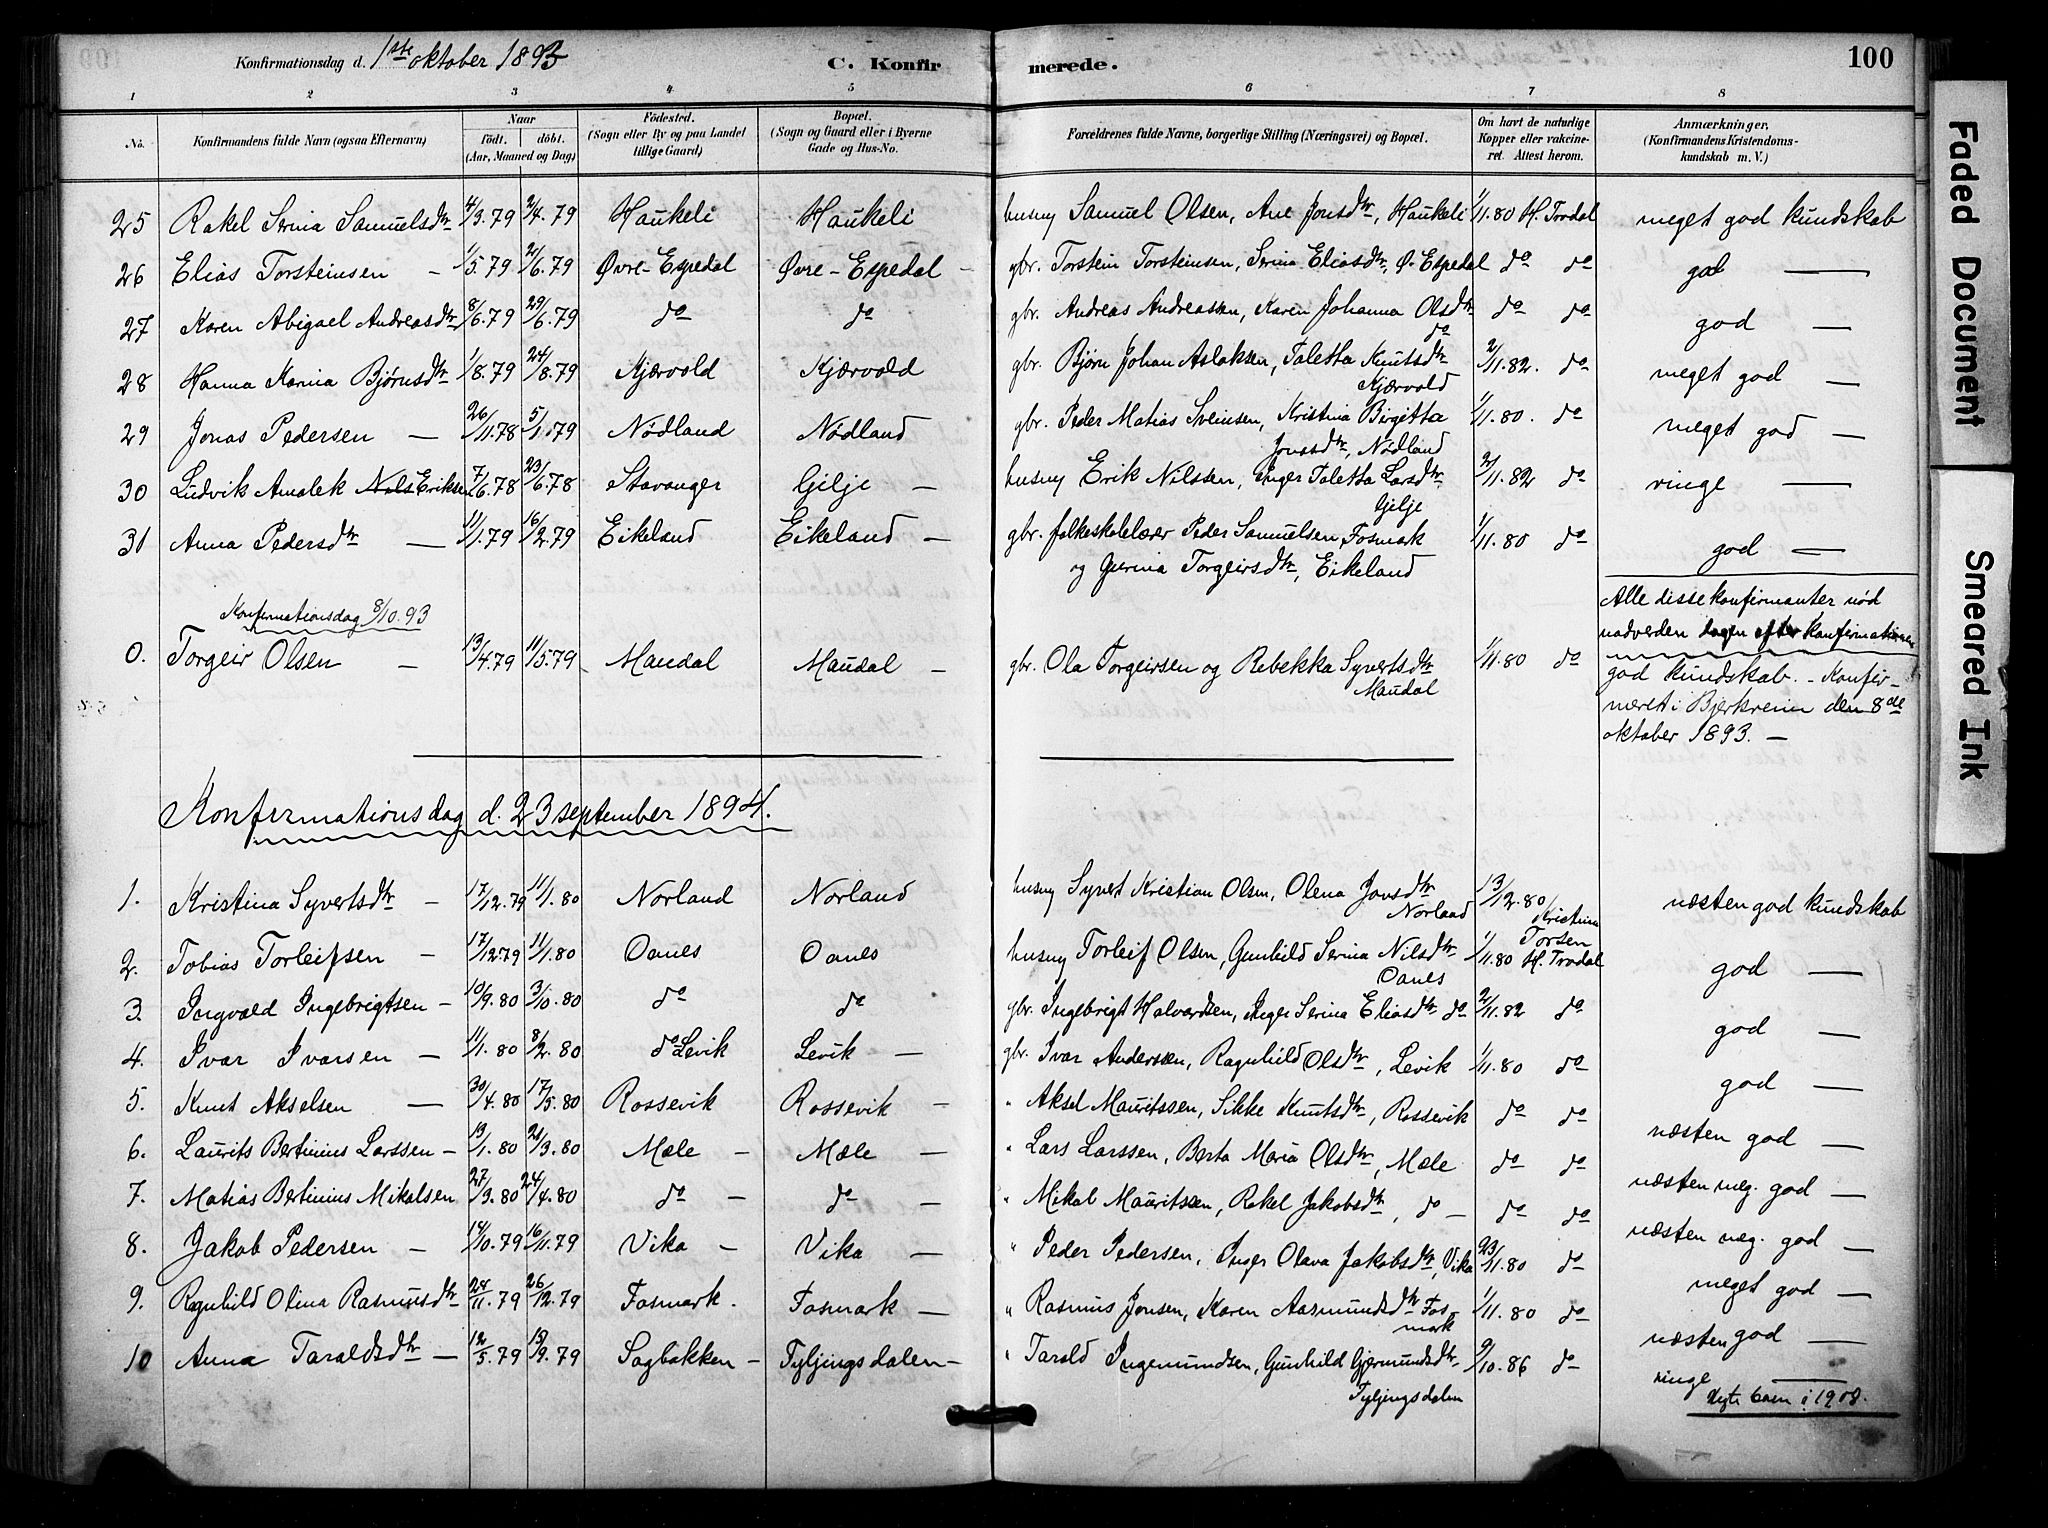 Konfirmationsdag d. 1ste oktober 1893
C. Konfirmerede.
100
1 2 3 4 5 6 7 8
No.
Konfirmandens fulde Navn (ogsaa Efternavn)
Naar
født. døbt.
(Aar, Maaned og Dag)
Fødested.
(Sogn eller By og paa Landet
tillige Gaard)
Bopæl.
(Sogn og Gaard eller i Byerne
Gade og Hus-No.
Forældrenes fulde Navne, borgerlige Stilling (Næringsvei) og Bopæl.
Om havt de naturlige
Kopper eller vakcine-
ret. Attest herom.
Anmærkninger,
(Konfirmandens Kristendoms-
kundskab m. V.)
25 Rakel Serina Samuelsdtr 4/3.79 2/4.79 Haukeli Haukeli husmg Samuel Olsen, Ane Jonsdtr, Haukeli 1/11.80 H. Trodal meget god kundskab
26 Elias Torsteinsen — 1/5.79 2/6.79 Øvre-Espedal Øvre-Espedal — gbr. Torstein Torsteinsen, Serina Eliasdtr, Ø. Espedal do do god —
27 Karen Abigael Andreasdtr 8/6.79 29/6.79 do do gbr. Andreas Andreassen, Karen Johanna Olsdtr do do god —
do
28 Hanna Karina Bjørnsdtr 1/8.79 24/8.79 Kjærvold Kjærvold gbr. Bjørn Johan Aslaksen, Taletta Knutsdtr 2/11.82. do meget god —
Kjærvold
29 Jonas Pedersen — 26/11.78 5/1.79 Nødland Nødland gbr. Peder Matias Sveinsen, Kristina Birgitta 1/11.80. do meget god —
Jonsdtr, Nødland
30 Ludvik Amalek Nils Eriksen 7/6.78 23/6.78 Stavanger Gilje — husmg Erik Nilssen, Inger Taletta Larsdtr 2/11.82 do ringe —
Gilje
31 Anna Pedersdtr — 11/1.79 16/2.79 Eikeland Eikeland — gbr. folkeskolelærer Peder Samuelsen, Fosmark 1/11.80 do god —
og Gurina Torgeirsdtr, Eikeland
Alle disse konfirmanter nød
nadverden dagen efter konfirmationen
Konfirmationsdag 8/10.93
0. Torgeir Olsen — 13/4.79 11/5.79 Maudal Maudal — gbr. Ola Torgeirsen og Rebekka Syvertsdtr 1/11.80 do god kundskab. - Konfir-
Maudal
meret i Bjerkreim den 8de
oktober 1893. —
Konfirmationsdag d. 23 september 1894.
1. Kristina Syvertsdtr — 17/12.79 11/1.80 Norland Norland husmg Syvert Kristian Olsen, Olena Jonsdtr 13/12.80 næsten god kundskab
Norland Kristina
Torsen
2. Tobias Torleifsen — 17/12.79 11/1.80 Oanes Oanes husmg Torleif Olsen, Gunhild Serina Nilsdtr 1/11.80 H. Trodal god —
Oanes
3. Ingvald Ingebrigtsen — 10/9.80 3/10.80 do do gbr. Ingebrigt Halvardsen, Inger Serina Eliasdtr do 2/11.82 do god —
4. Ivar Ivarsen — 11/1.80 8/2.80 do Levik Levik — gbr. Ivar Anderssen, Ragnhild Olsdtr, Levik 1/11.80 do god —
5. Knut Akselsen — 30/4.80 17/5.80 Rossevik Rossevik — " Aksel Mauritssen, Sikke Knutsdtr, Rossevik do do næsten god —
6. Laurits Bertinius Larssen — 13/1.80 21/3.80 Mæle — Mæle — " Lars Larssen, Berta Maria Olsdtr, Mæle do do næsten meg. god —
7. Matias Bertinius Mikalsen 27/3.80 24/4.80 do — do — " Mikal Mauritsen, Rakel Jakobsdtr, do — do do næsten meg. god —
8. Jakob Pedersen — 14/10.79 16/11.79 Vika — Vika — " Peder Pedersen, Inger Olava Jakobsdtr, Vika 23/11.80 do meget god —
9. Ragnhild Olina Rasmusdtr 24/11.79 26/12.79 Fosmark. Fosmark — " Rasmus Jonsen, Karen Aasmundsdtr Fos- 1/11.80 do næsten god —
mark
10 Anna Taraldsdtr — 12/5.79 13/9.79 Sagbakken — Tyljingsdalen — " Tarald Ingemundsen, Gunhild Gjermundsdtr 9/10.86 do ringe —
Tyljingsdalen
i 1908.
Faded Document
Smeared Ink